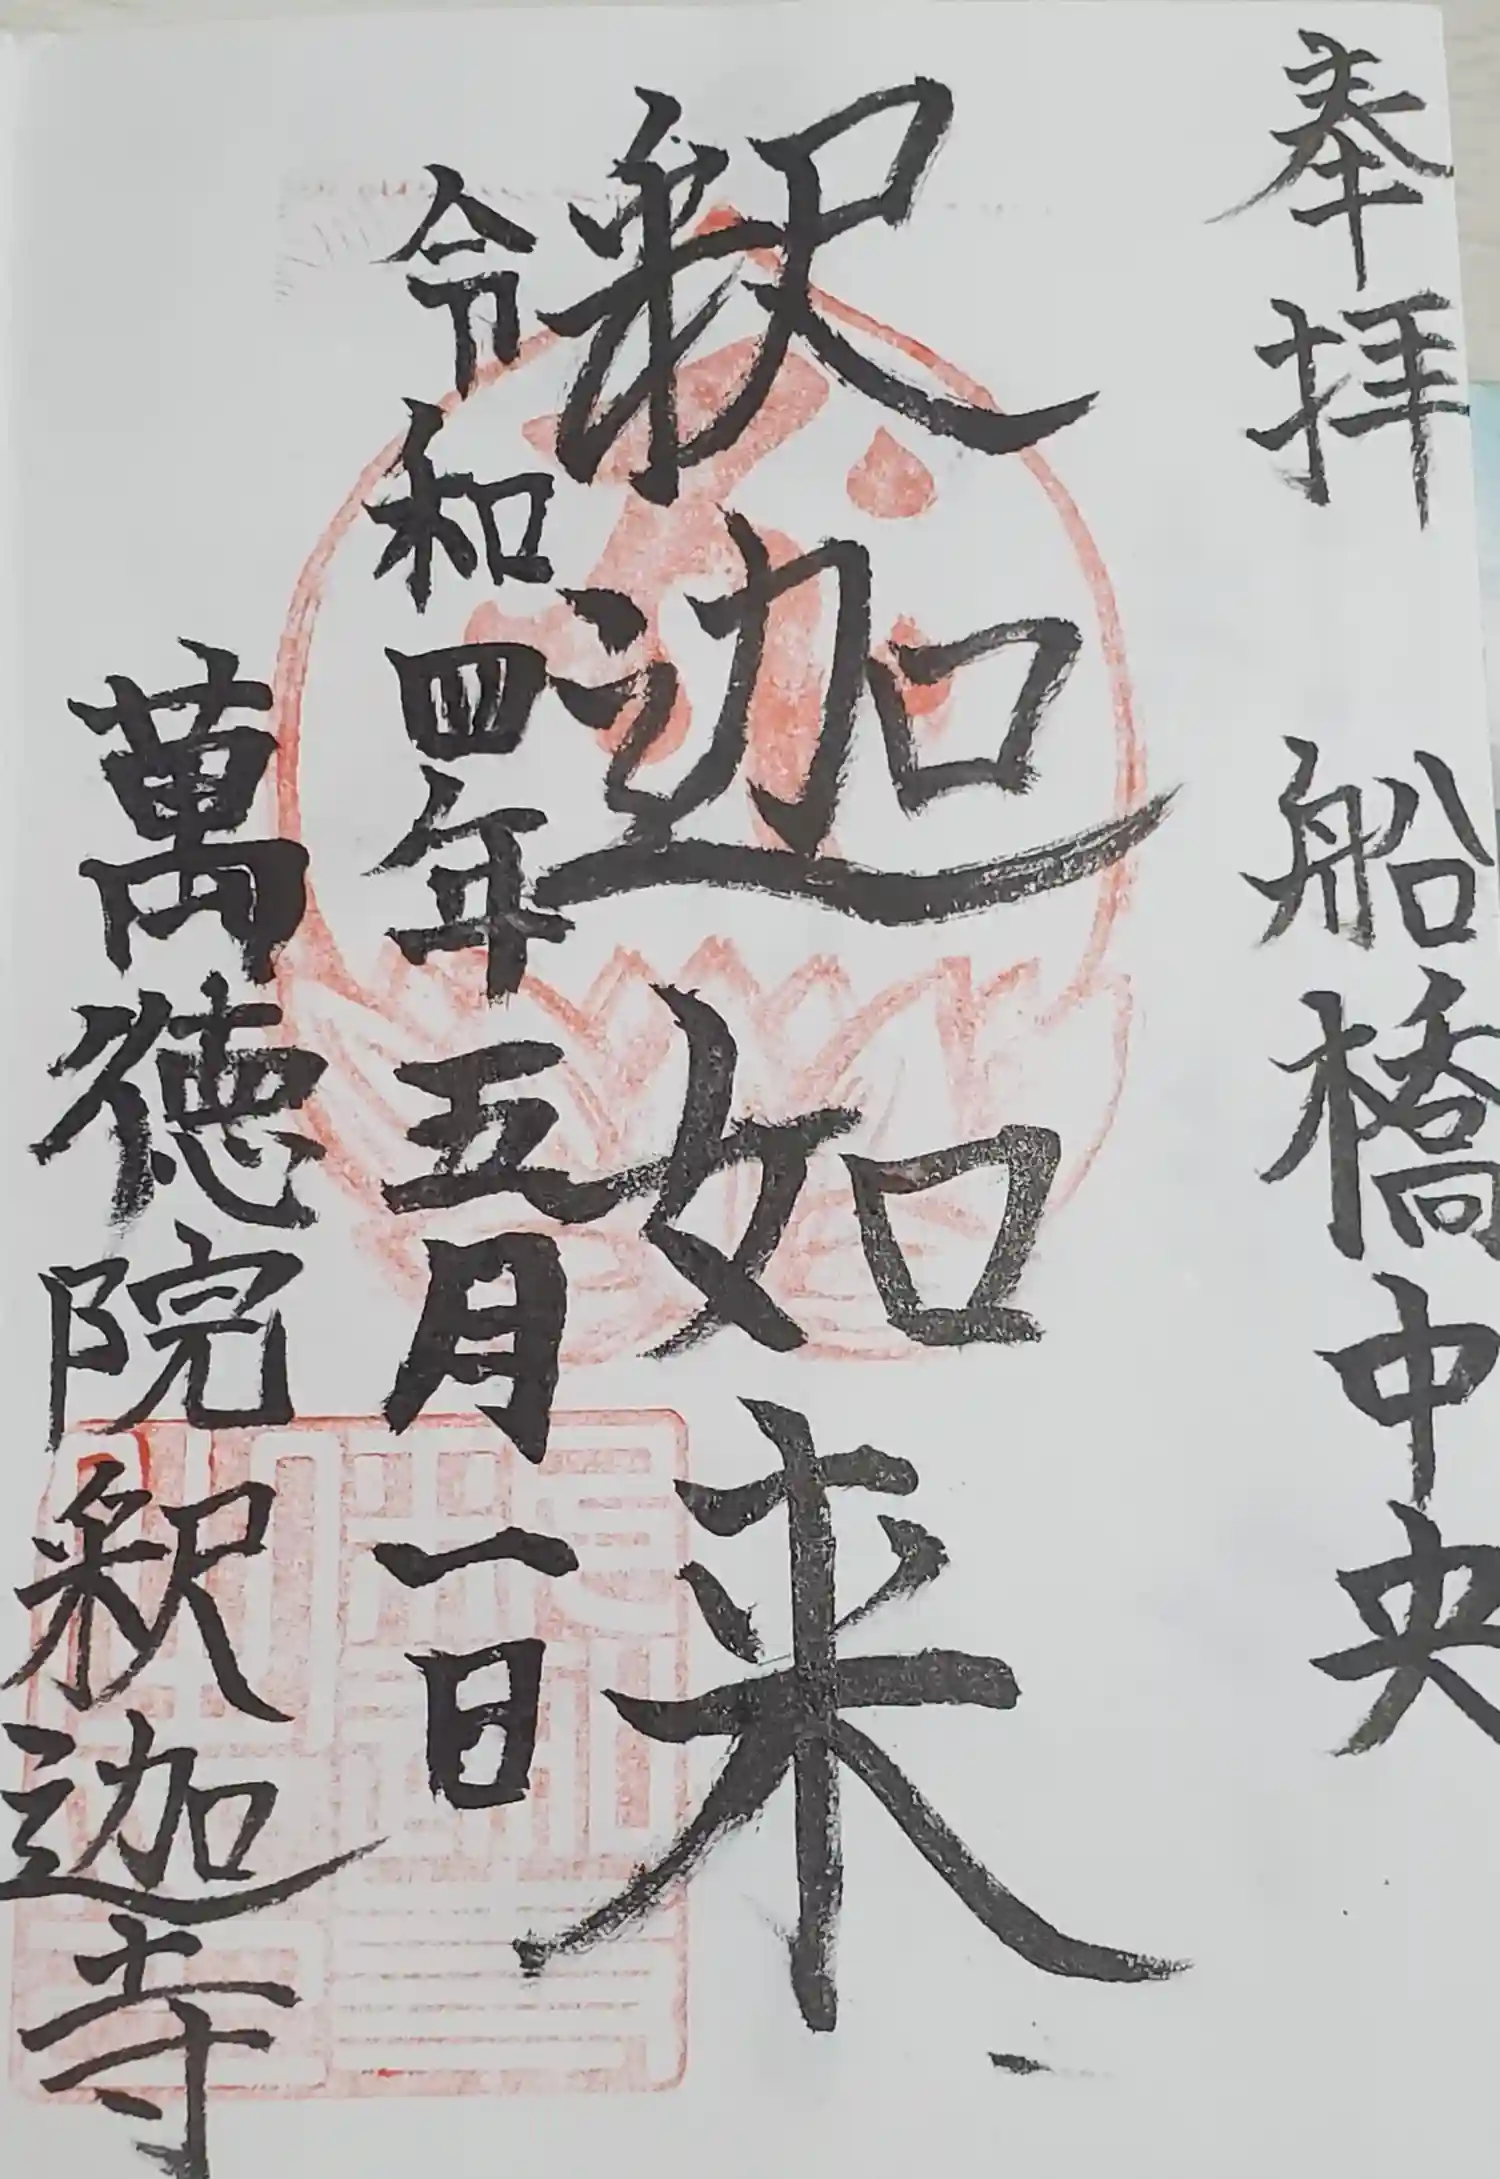 奉拝 船橋中央
釈迦如来
令和四年五月一日
萬徳院釈迦寺